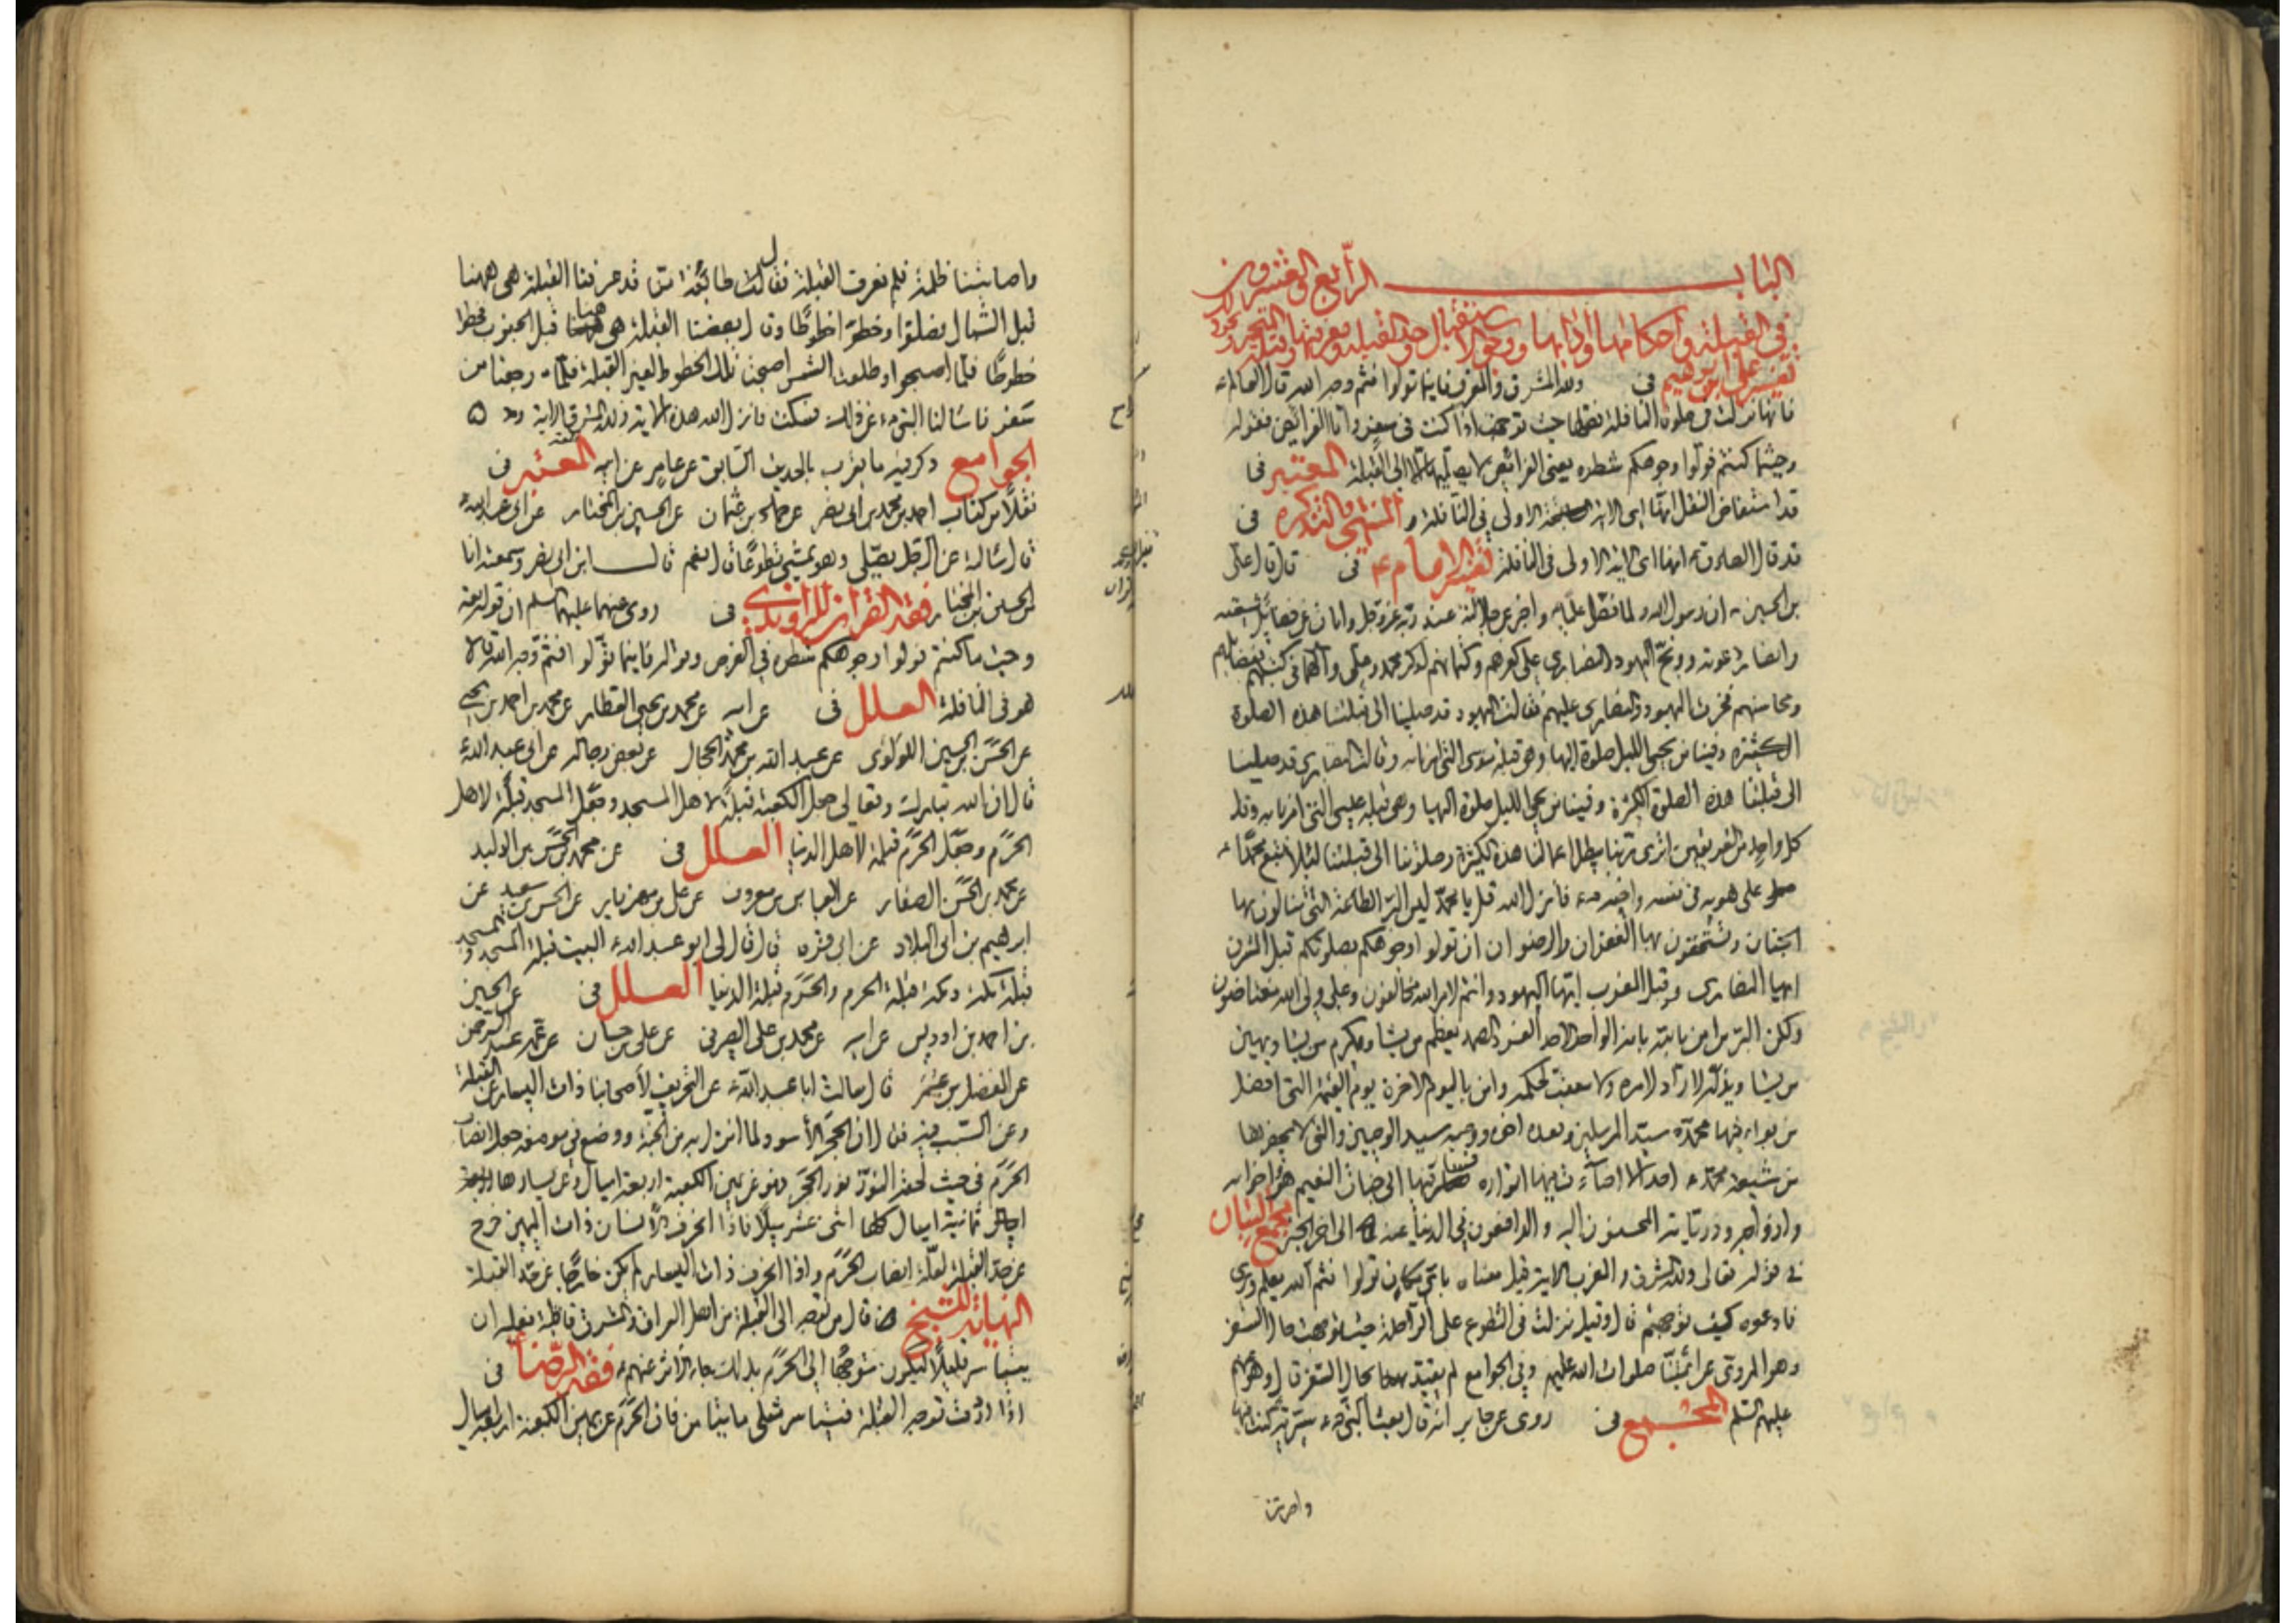 الباب الرابع والعشرون
في القبلة وأحكامها وآدابها ووجوب الاستقبال نحو القبلة ومعرفتها وقبلة المتحير
تفسير علي بن ابرهيم في ولله المشرق والمغرب فاينما تولوا فثم وجه الله قال العالم ع
فانها نزلت في صلوة النافلة فصلها حيث توجهت اذا كنت في سفر واما الفرائض فقوله
وحيثما كنتم فولوا وجوهكم شطره يعني الفرائض لا يصليها الا الى القبلة المعتبر في
قد استفاض النقل انها اي الاية الاولى في النافلة و المنتهى والتذكرة في
قد قال الصادق ع انها اي الاية الاولى في النافلة تفسير الامام ع في قال قال علي
بن الحسين ع ان رسول الله لما فضل عليا و اخبر عن جلالته عند ربه عز وجل وابان عن فضائل شيعته
وانصار دعوته ووبخ اليهود والنصارى على كفرهم وكتمانهم لذكر محمد وعلي وآلهما في كتبهم بفضائلهم
ومحاسنهم فخرت اليهود والنصارى عليهم فقالت اليهود قد صلينا الى قبلتنا هذه الصلوة
الكثيرة وفينا من يحيى الليل صلوة اليها وهي قبلة موسى التي امرنا بها وقالت النصارى قد صلينا
الى قبلتنا هذه الصلوة الكثيرة وفينا من يحيى الليل صلوة اليها وهي قبلة عيسى التي امرنا بها وقال
كل واحد من الفريقين اترى ربنا يبطل اعمالنا هذه الكثيرة وصلوتنا الى قبلتنا لانا لا نتبع محمدا
على هويه في نفسه واخيه فانزل الله قل يا محمد ليس البر الطاعة التي تنالون بها
الجنان وتستحقون بها الغفران والرضوان ان تولوا وجوهكم بصلوتكم قبل المشرق
ايها النصارى وقبل المغرب ايها اليهود وانتم لامر الله مخالفون وعلى ولي الله مغتاظون
ولكن البر من امن بالله بانه الواحد الاحد الفرد الصمد يعظم من يشا ويكرم من يشا ويهين
من يشا ويذله لا راد لامره ولا معقب لحكمه وامن باليوم الاخر يوم القيمة التي افضل
من يوافيها محمد سيد المرسلين وبعده اخوه ووصيه سيد الوصيين والتي لا يحضرها
من شيعة محمد احد الا اضاءت فيها انواره فسار فيها الى جنات النعيم هو واخوانه
وازواجه وذرياته المحسنون اليه والدافعون في الدنيا عنه الى اخر الخبر مجمع البيان
في قوله تعالى ولله المشرق والمغرب الاية قيل معناه باي مكان تولوا فثم الله يعلم ويرى
فادعوه كيف توجهتم قال وقيل نزلت في التطوع على الراحلة حيث توجهت حال السفر
وهو المروي عن ائمتنا صلوات الله عليهم وفي الجوامع لم يقيد بحال السفر
عليهم السلم المجمع في روى عن جابر انه قال بعث النبي ص سرية كنت فيها
واصابتنا
واصابتنا ظلمة فلم نعرف القبلة فقالت طائفة منا قد عرفنا القبلة هي ههنا
قبل الشمال فصلوا وخطوا خطوطا وقال بعضنا القبلة هي ههنا قبل الجنوب فخطوا
خطوطا فلما اصبحوا وطلعت الشمس اصبحت تلك الخطوط لغير القبلة فلما رجعنا من
سفرنا سالنا النبي ص عن ذلك فسكت فانزل الله هذه الاية ولله المشرق الاية
الجوامع وذكر فيه ما يقرب بالحديث السابق عن عامر عن ابيه المعتبر في
نقلا من كتاب احمد بن محمد بن ابي نصر عن حماد بن عثمان عن الحسين بن المختار عن ابي عبد الله ع
قال سالته عن الرجل يصلي وهو يمشي تطوعا قال نعم قال ابن ابي نصر وسمعته انا
من الحسين بن المختار فقه القران للراوندي في روى عنهما عليهما السلم ان قوله تعالى
وحيث ما كنتم فولوا وجوهكم شطره في الفرض وقوله فاينما تولوا فثم وجه الله قالا
هو في النافلة العلل في عن ابيه عن محمد بن يحيى العطار عن محمد بن احمد بن يحيى
عن الحسن بن الحسين اللولوى عن عبد الله بن محمد الحجال عن بعض رجاله عن ابي عبد الله ع
قال ان الله تبارك وتعالى جعل الكعبة قبلة لاهل المسجد وجعل المسجد قبلة لاهل
الحرم وجعل الحرم قبلة لاهل الدنيا العلل في عن محمد بن الحسن بن الوليد
عن محمد بن الحسن الصفار عن العباس بن معروف عن علي بن مهزيار عن الحسن بن سعيد عن
ابرهيم بن ابي البلاد عن ابي غره قال قال لي ابو عبد الله ع البيت قبلة المسجد والمسجد
قبلة مكة ومكة قبلة الحرم والحرم قبلة الدنيا العلل في عن الحسين
بن احمد بن ادريس عن ابيه عن محمد بن علي الصيرفي عن علي بن حسان عن عمه عبد الرحمن
عن الفضل بن عمر قال سالت ابا عبد الله ع عن التحريف لاصحابنا ذات اليسار عن القبلة
وعن السبب فيه فقال ان الحجر الأسود لما انزل به من الجنة ووضع في موضعه جعل انصاب
الحرم في حيث لحقه النور نور الحجر فهو عن يمين الكعبة اربعة اميال وعن يسارها ثمانية
اميال كلها اثنى عشر ميلا فاذا انحرف الانسان ذات اليمين خرج
عن حد القبلة لقلة انصاب الحرم واذا انحرف ذات اليسار لم يكن خارجا عن حد القبلة
النهاية للشيخ قال من توجه الى القبلة من اهل العراق والمشرق قاطبة فعليه ان
يتياسر قليلا ليكون متوجها الى الحرم بذلك جاء الاثر عنهم ع فقه الرضا في
اذا اردت توجه القبلة فتياسر مثلي ما تيامن فان الحرم عن يمين الكعبة اربعة اميال